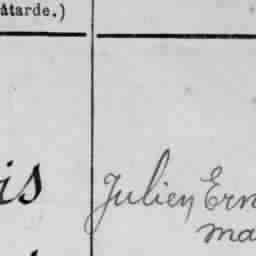 åtarde.)
is Julien Ern
ma